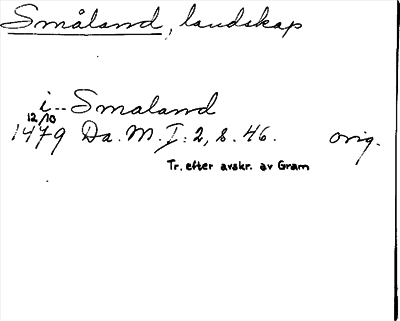 Småland, landskap
i -- Smaland
12/10
1479 Da. M. I: 2, s. 46. orig.
Tr. efter avskr. av Gram